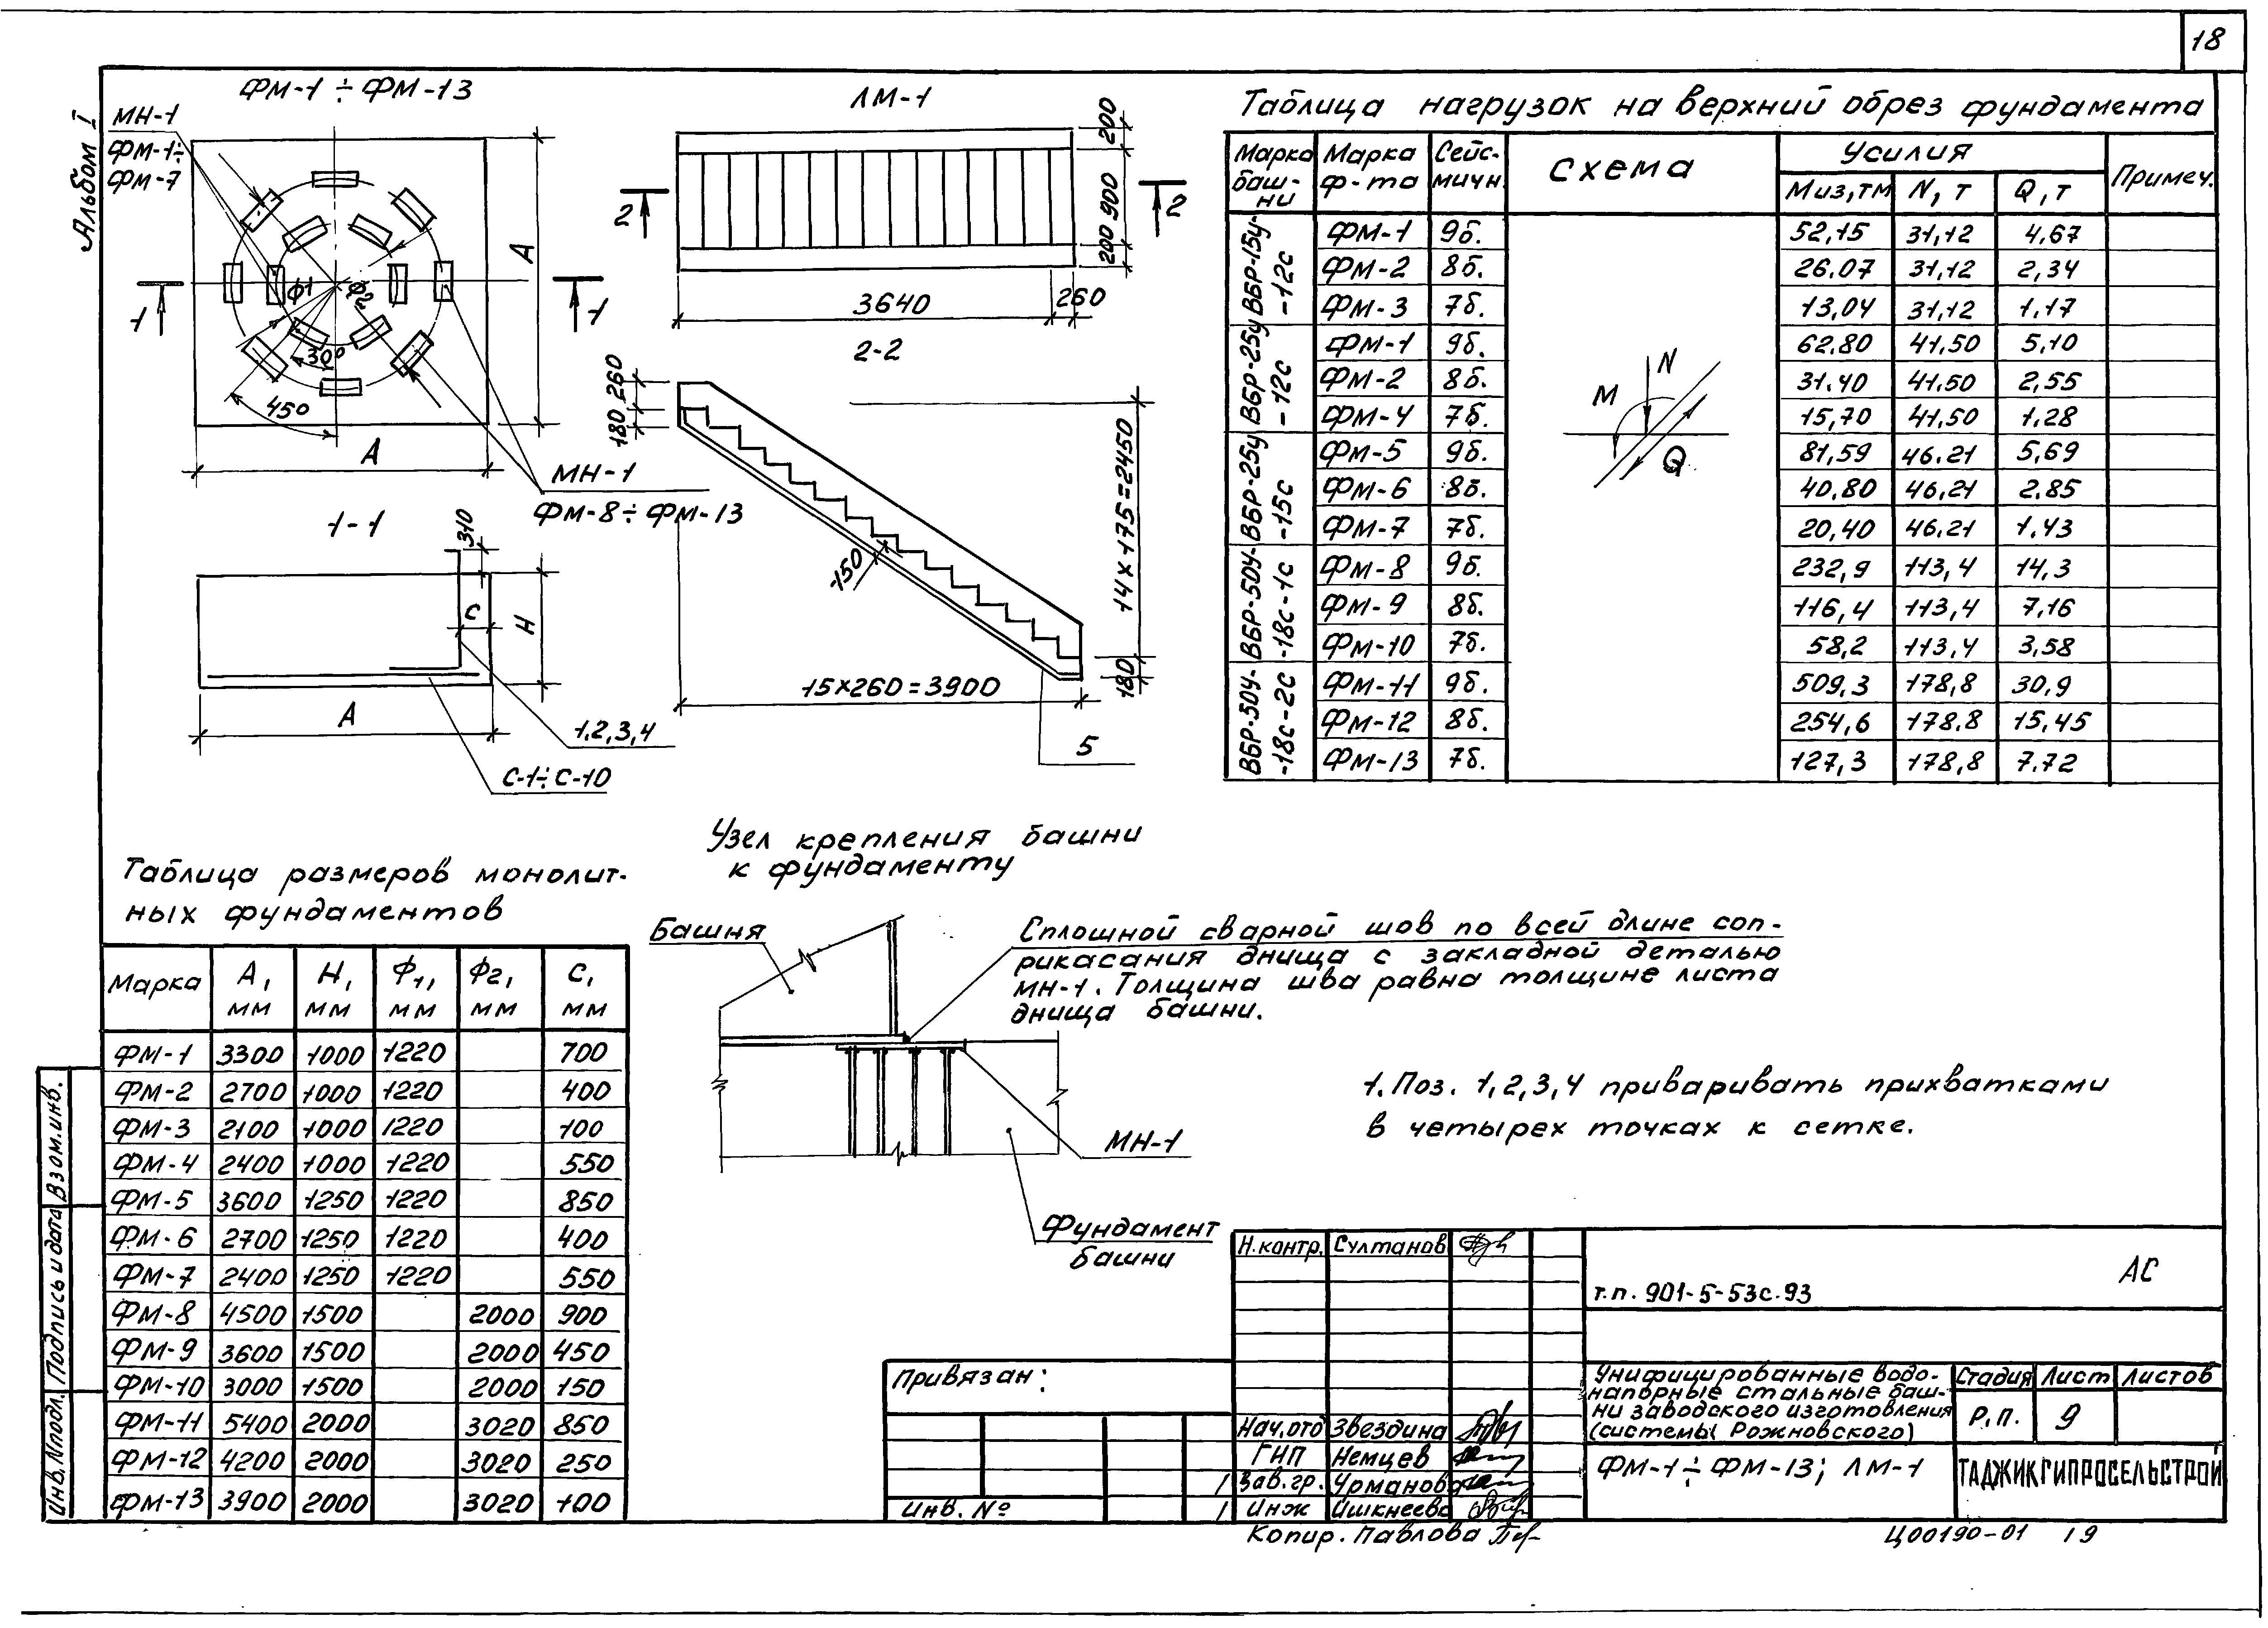 18
Альбом I
ФМ-1 ÷ ФМ-13
МН-1
ФМ-1÷
ФМ-7
А
ф1
ф2
1
1
30°
45°
А
МН-1
ФМ-8 ÷ ФМ-13
1-1
310
С
Н
А
1,2,3,4
С-1÷С-10
ЛМ-1
200
900
200
2
2
3640
260
2-2
260
180
150
14×175=2450
180
15×260=3900
5
Таблица нагрузок на верхний обрез фундамента
Марка баш-ни | Марка ф-та | Сейс-мичн. | Схема | Усилия | Примеч.
Миз,тм | N, т | Q, т
ВБР-15у-12с
ФМ-1 9б. 52,15 31,12 4,67
ФМ-2 8б. 26.07 31,12 2,34
ФМ-3 7б. 13,04 31,12 1,17
ВБР-25у-12с
ФМ-1 9б. 62,80 41,50 5,10
ФМ-2 8б. 31.40 41.50 2,55
ФМ-4 7б. 15,70 41,50 1,28
ВБР-25у-15с
ФМ-5 9б. 81,59 46.21 5,69
ФМ-6 8б. 40,80 46,21 2,85
ФМ-7 7б. 20,40 46.21 1,43
ВБР-50у-18с-1с
ФМ-8 9б. 232,9 113,4 14,3
ФМ-9 8б. 116,4 113,4 7,16
ФМ-10 7б. 58,2 113,4 3,58
ВБР-50у-18с-2с
ФМ-11 9б. 509,3 178,8 30,9
ФМ-12 8б. 254,6 178.8 15,45
ФМ-13 7б. 127,3 178,8 7.72
М
N
Q
Таблица размеров монолит-
ных фундаментов
Марка | А, мм | Н, мм | Ф1, мм | Ф2, мм | С, мм
ФМ-1 3300 1000 1220 700
ФМ-2 2700 1000 1220 400
ФМ-3 2100 1000 1220 100
ФМ-4 2400 1000 1220 550
ФМ-5 3600 1250 1220 850
ФМ-6 2700 1250 1220 400
ФМ-7 2400 1250 1220 550
ФМ-8 4500 1500 2000 900
ФМ-9 3600 1500 2000 450
ФМ-10 3000 1500 2000 150
ФМ-11 5400 2000 3020 850
ФМ-12 4200 2000 3020 250
ФМ-13 3900 2000 3020 100
Узел крепления башни
к фундаменту
Башня
Сплошной сварной шов по всей длине соп-
рикасания днища с закладной деталью
МН-1. Толщина шва равна толщине листа
днища башни.
МН-1
Фундамент
башни
1. Поз. 1,2,3,4 приваривать прихватками
в четырех точках к сетке.
Взам.инв.
Подпись и дата
Инв.Nподл.
Привязан:
Инв. №
Н.контр. Султанов
Нач.отд Звездина
ГИП Немцев
Зав.гр. Урманова
Инж Ишкнеева
т.п. 901-5-53с.93
АС
Унифицированные водо-
напорные стальные баш-
ни заводского изготовления
(системы Рожновского)
Стадия Лист Листов
Р.п. 9
ФМ-1 ÷ ФМ-13; ЛМ-1
ТАДЖИКГИПРОСЕЛЬСТРОЙ
Копир. Павлова
Ц00190-01 19